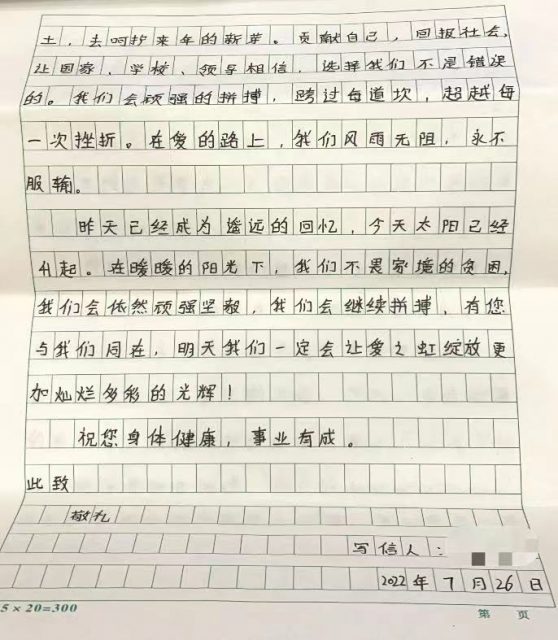 土，去呵护来年的新芽。贡献自己，回报社会，
让国家、学校、领导相信，选择我们不是错误
的。我们会顽强的拼搏，跨过每道坎，超越每
一次挫折。在爱的路上，我们风雨无阻，永不
服输。
昨天已经成为遥远的回忆，今天太阳已经
升起。在暖暖的阳光下，我们不畏家境的贫困，
我们会依然顽强坚毅，我们会继续拼搏、有您
与我们同在，明天我们一定会让爱之虹绽放更
加灿烂多彩的光辉！
祝您身体健康，事业有成。
此致
敬礼
写信人：
2022年7月26日
5×20=300
第 页